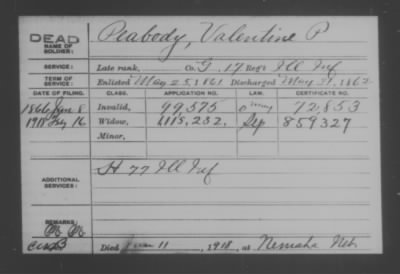 DEAD
NAME OF SOLDIER: Peabody, Valentine P
SERVICE: Late rank, Co. G, 17 Reg't Ill Inf
TERM OF SERVICE: Enlisted May 25, 1861 Discharged May 31, 1862
DATE OF FILING. CLASS. APPLICATION NO. LAW. CERTIFICATE NO.
1866 Jun 8 Invalid, 99,575 72,853
1918 July 16 Widow, 1115,232. Sep 859327
Minor,
ADDITIONAL SERVICES: H 77 Ill Inf
REMARKS:
Died 11, 1918, at Nemaha Neb